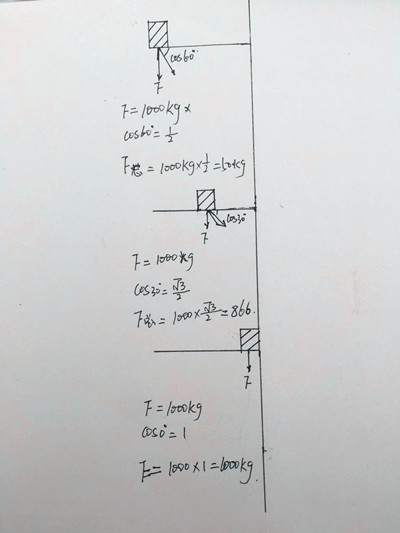 cos60°
F
F=1000kg×
cos60°=1/2
F总=1000kg×1/2=50kg
cos30°
F
F=1000kg
cos30°=√3/2
=1000×√3/2=866.
F
F=1000kg
cos0°=1
F=1000×1=1000kg.